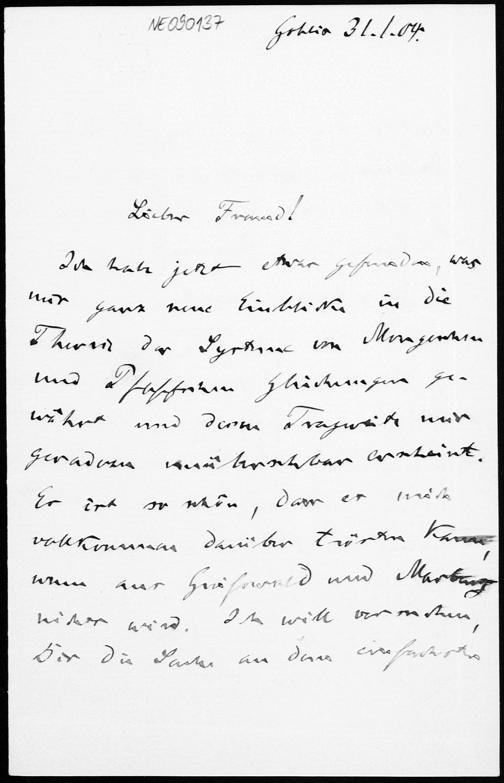 NE090137
Gohlis 31./1.04.
Lieber Freund!
Ich habe jetzt etwas gefunden, was
mir ganz neue Einblicke in die
Theorie der Systeme von Mongeschen
und Pfaffschen Gleichungen ge-
währt und deren Tragweite mir
geradezu unübersehbar erscheint.
Es ist so schön, dass es mich
vollkommen darüber trösten kann,
wenn aus Greifswald und Marburg
nichts wird. Ich will versuchen,
Dir die Sache an dem einfachsten